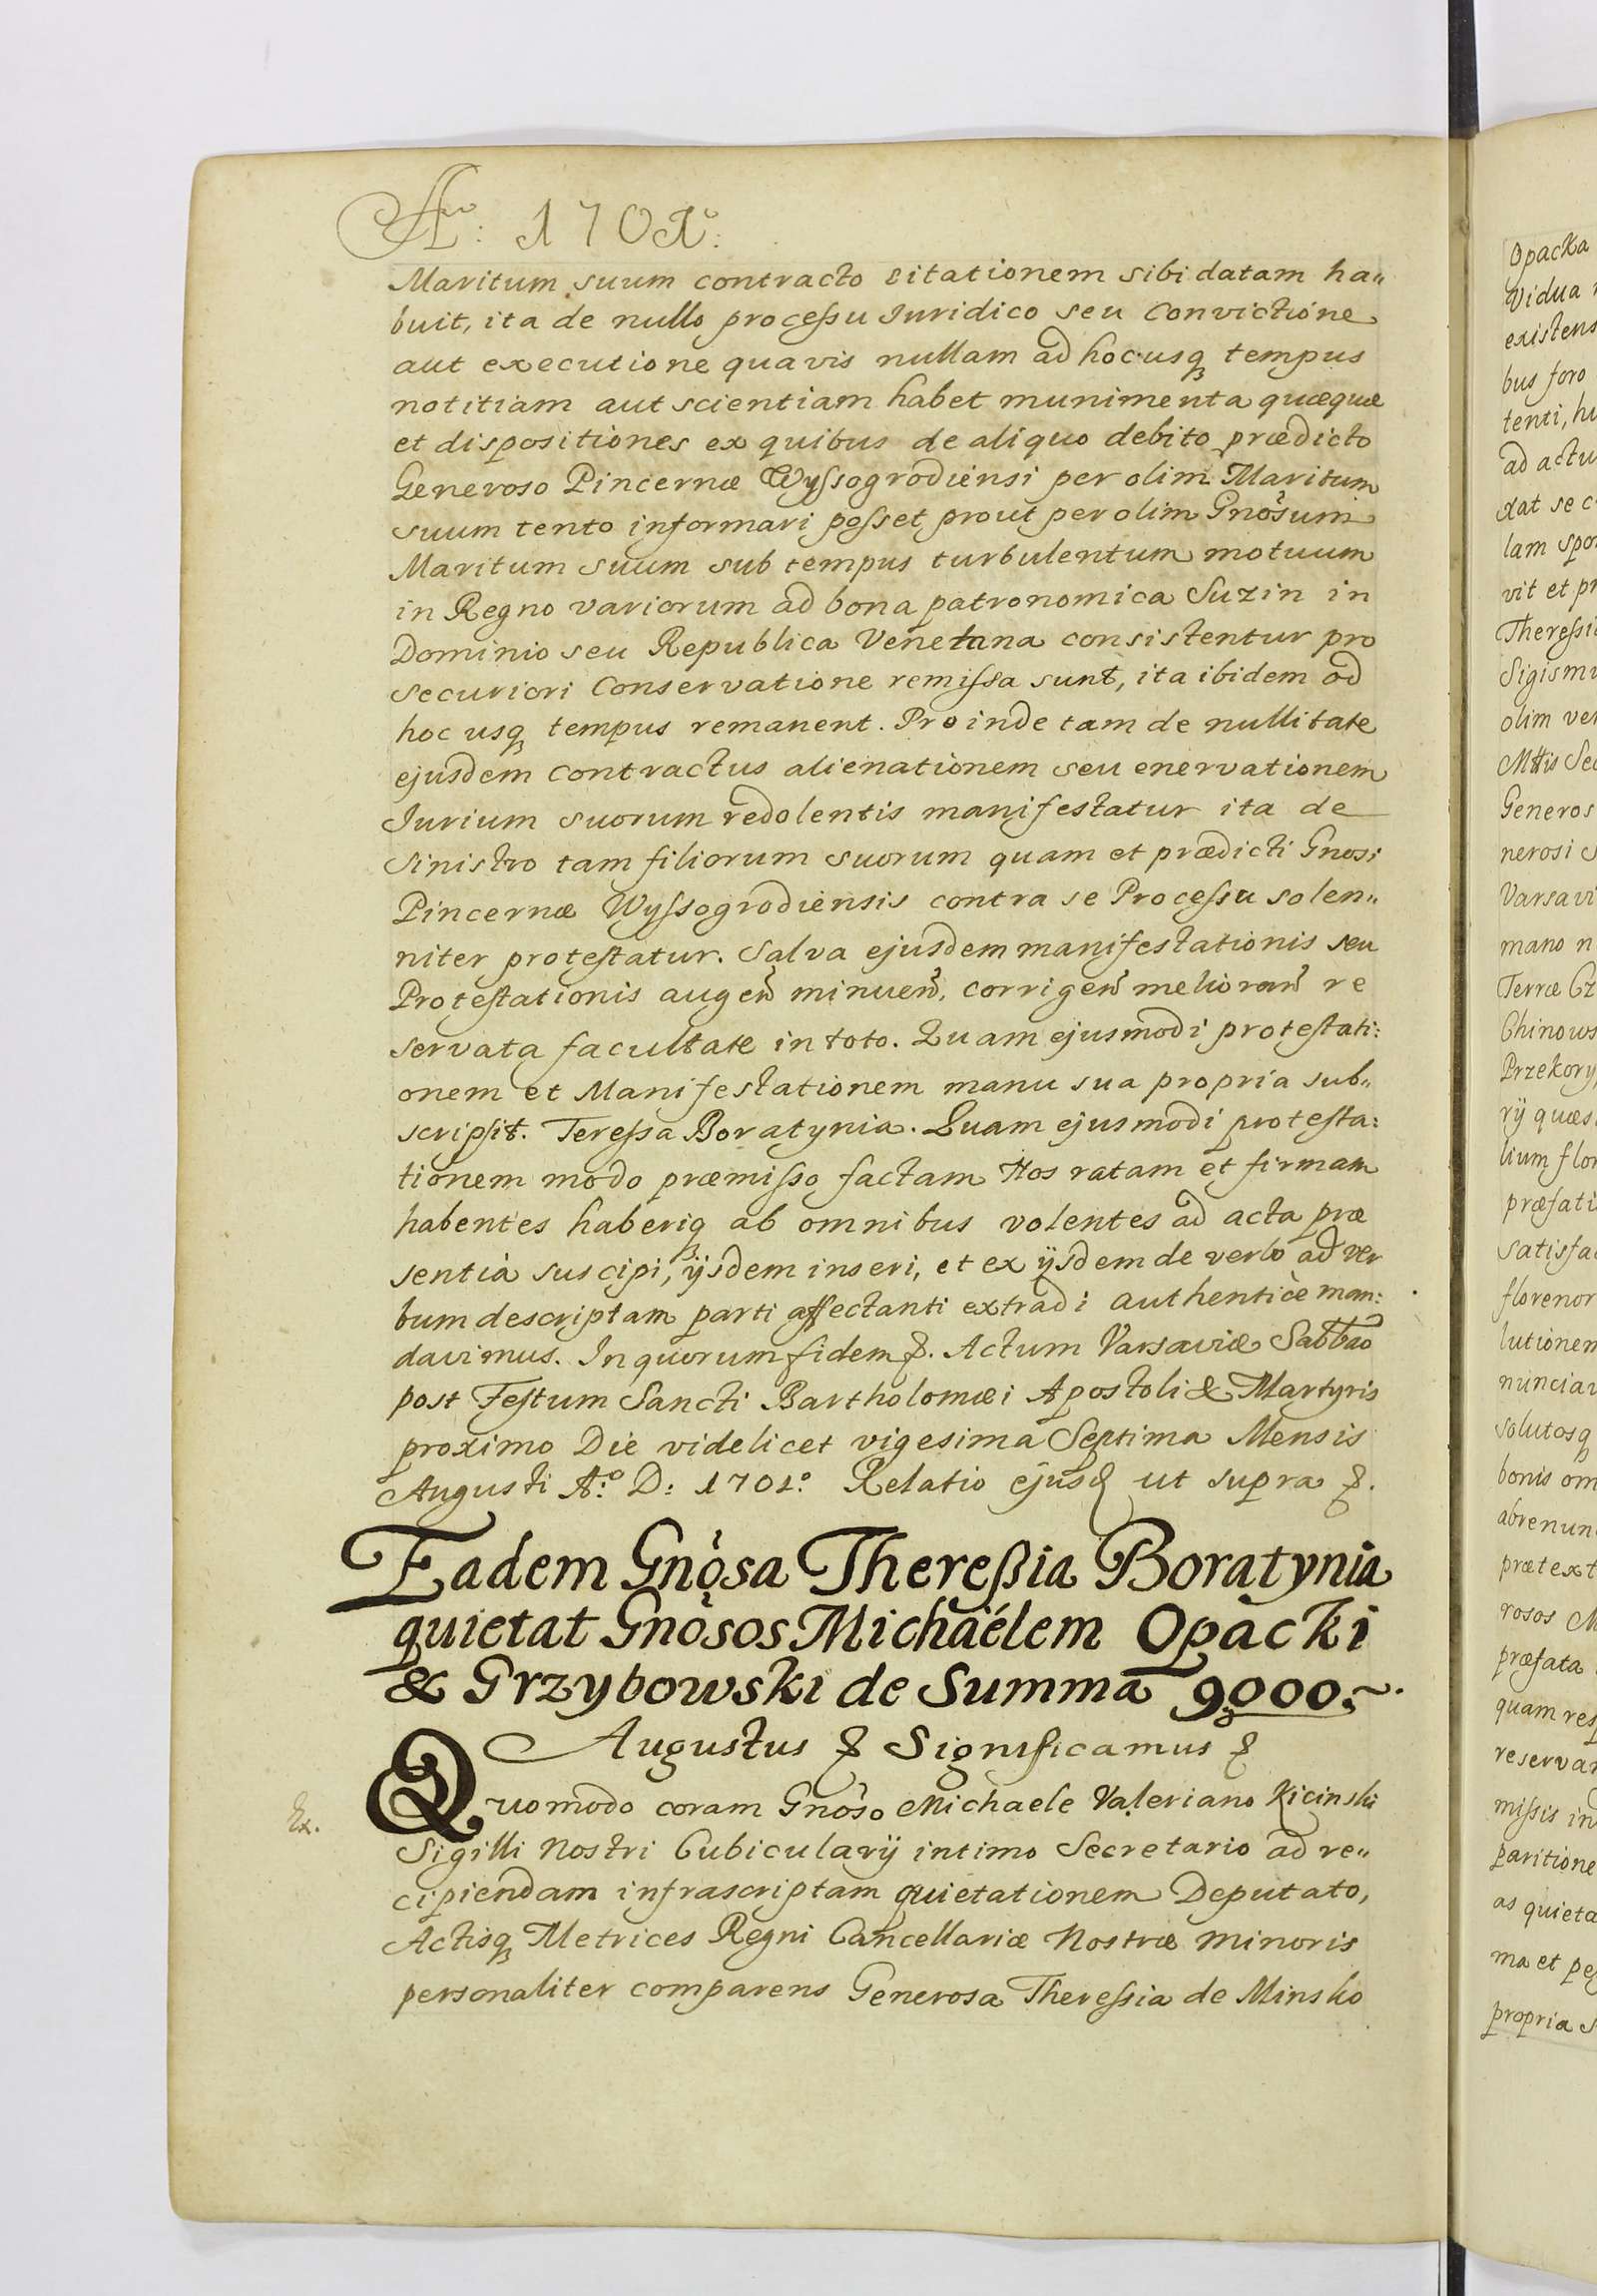 Aº: 1701º:
Maritum suum contracto citationem sibi datam ha„
buit, ita de nullo proceſsu Iuridico seu Convictione
aut executione quavis nullam ad hocusqꝫ tempus
notitiam aut scientiam habet munimenta quæque
et dispositiones ex quibus de aliquo debito prædicto
Generoso Pincernæ Wyſsogrodiensi per olim Maritum
suum tento informari poſset prout per olim Gnosum
Maritum suum sub tempus turbulentum motuum
in Regno variorum ad bona patronomica Suzin in
Dominio seu Republica Venetana consistentur pro
securiori Conservatione remiſsa sunt, ita ibidem ad
hoc usqꝫ tempus remanent. Proinde tam de nullitate
ejusdem contractus alienationem seu enervationem
Iurium suorum redolentis manifestatur ita de
Sinistro tam filiorum suorum quam et prædicti Gnosi
Pincernæ Wyſsogrodiensis contra se Proceſsu solen„
niter proteſtatur. Salva ejusdem manifestationis seu
Proteſtationis augen̄ minuen̄, corrigen̄ melioran̄ re
servata facultate in toto. Quam ejusmodi proteſtati:
onem et Manifestationem manu sua propria sub„
scripſit. Tereſsa Boratynia. Quam ejusmodi proteſta:
tionem modo præmiſso factam Nos ratam et firmam
habentes haberiqꝫ ab omnibus volentes ad acta præ
sentia suscipi, ijsdem inseri, et ex ijsdem de verbo ad ver
bum descriptam parti affectanti extradi authenticè man:
davimus. In quorum fidem &. Actum Varsaviæ Sabbato
post Feſtum Sancti Bartholomæi Apostoli & Martyris
proximo Die videlicet vigesima Septima Mensis
Augusti Aº: D: 1701º: Relatio ejusd ut supra &.
Eadem Gnosa Thereßia Boratynia
quietat Gnosos Michaélem Opacki
& Grzybowski de Summa 9000.~.
Augustus & Significamus &
Ex.
Quomodo coram Gnoso Michaele Valeriano Kicinski
Sigilli Nostri Cubicularij intimo Secretario ad re„
cipiendam infrascriptam quietationem Deputato,
Actisqꝫ Metrices Regni Cancellariæ Nostræ Minoris
personaliter comparens Generosa Thereſsia de Minsko
Opacka
Vidua
existens
bus foro
tenti, hu
ad actu
dat se c
lam spon
vit et pr
Thereſsia
Sigismu
olim ver
Mttis Sec
Generos
nerosi S
Varsavi
mano n
Terræ Cz
Chinows
Przekory
rij quæs
lium flor
præfati
satisfac
florenor
lutionem
nunciav
solutosqꝫ
bonis om
abrenun
prætext
rosos M
præfata
quam res
reservar
miſsis in
paritione
as quieta
ma et pe
propria s